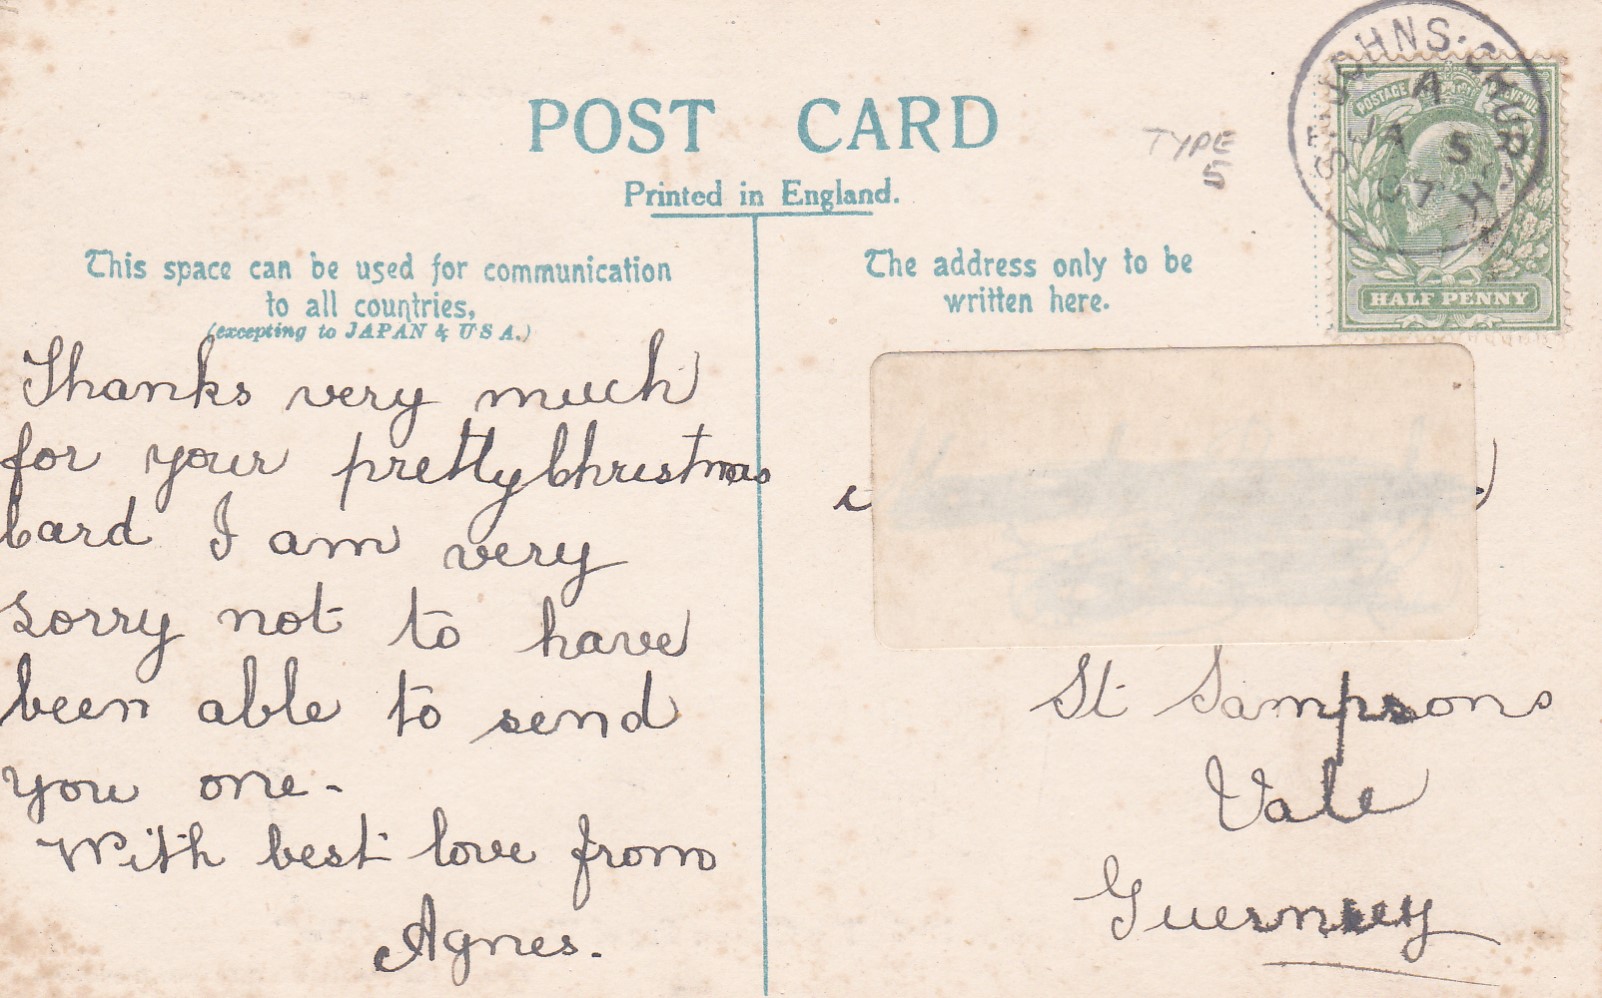 POST CARD
Printed in England.
This space can be used for communication
to all countries,
(excepting to JAPAN & USA.)
The address only to be
written here.
TYPE
5
ST. JOHNS. CHURCH
A
JA 5
07
POSTAGE REVENUE
HALF PENNY
Thanks very much
for your pretty Christmas
Card I am very
sorry not to have
been able to send
you one-
With best love from
Agnes.
St Sampsons
Vale
Guernsey